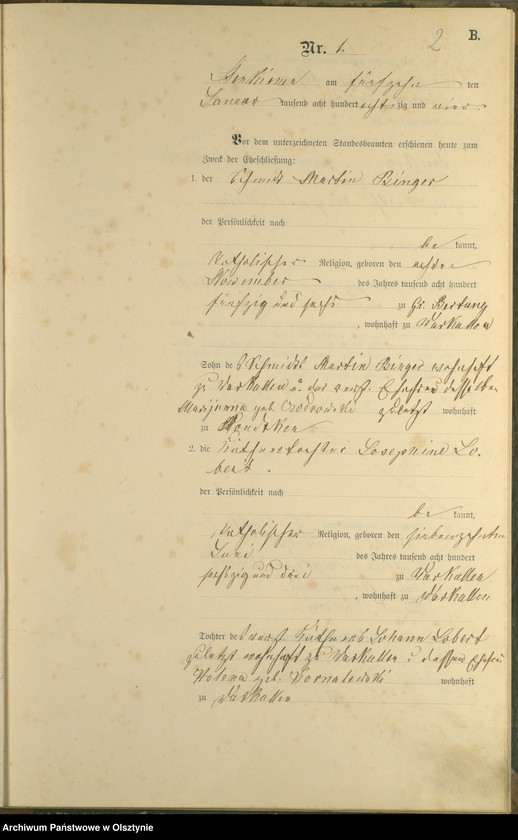 Nr. 1.
2
B.
am fünfzehn ten
Januar tausend acht hundert acht zig und vier
Vor dem unterzeichneten Standesbeamten erschienen heute zum
Zweck der Eheschließung:
1. der Schmidt Martin Binger
der Persönlichkeit nach
be kannt,
katholischer Religion, geboren den achten
November des Jahres tausend acht hundert
fünfzig und sechs zu Gr. Bertung
, wohnhaft zu Darkallen
Sohn des Schmidts Martin Binger wohnhaft
zu Warkallen u. der verst. Ehefrau desselben
Marijanna geb. zuletzt wohnhaft
zu
2. die Käthnertochter Josephine Lo-
bert.
der Persönlichkeit nach
be kannt,
katholischer Religion, geboren den siebenzehnten
Juni des Jahres tausend acht hundert
sechszig und drei zu Warkallen
, wohnhaft zu Warkallen
Tochter des verst. Käthners Johann Lobert
zuletzt wohnhaft zu Warkallen u. dessen Ehefrau
Helena geb. wohnhaft
zu Warkallen
Archiwum Państwowe w Olsztynie